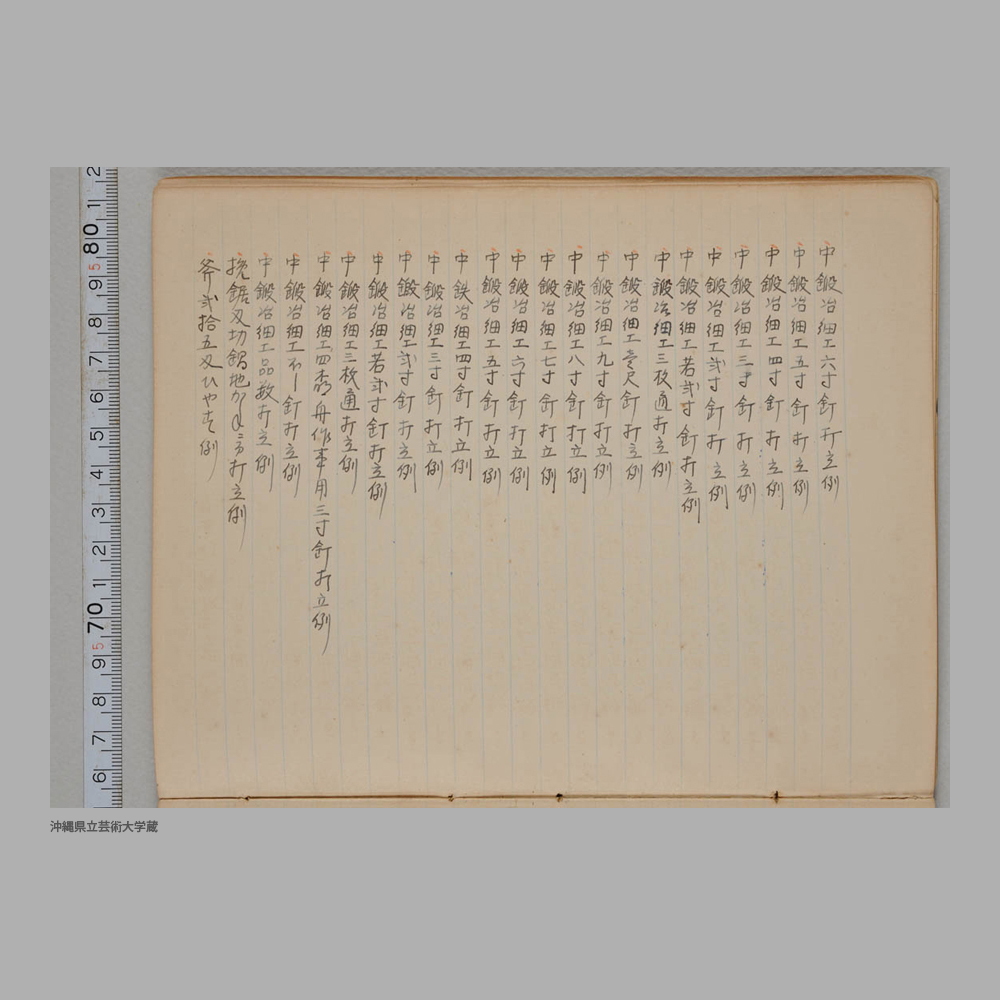 中鍛冶細工六寸釘打立例
中鍛冶細工五寸釘打立例
中鍛冶細工四寸釘打立例
中鍛冶細工三寸釘打立例
中鍛冶細工弐寸釘打立例
中鍛冶細工若弐寸釘打立例
中鍛冶細工三枚通打立例
中鍛冶細工壱尺釘打立例
中鍛冶細工九寸釘打立例
中鍛冶細工八寸釘打立例
中鍛冶細工七寸釘打立例
中鍛冶細工六寸釘打立例
中鍛冶細工五寸釘打立例
中鉄冶細工四寸釘打立例
中鍛冶細工三寸釘打立例
中鍛冶細工弐寸釘打立例
中鍛冶細工若弐寸釘打立例
中鍛冶細工三枚通打立例
中鍛冶細工舟作事用三寸釘打立例
中鍛冶細工釘打立例
中鍛冶細工品数打立例
挽鋸又切打立例
斧弐拾五又ひやす例
2 1 80 9 8 7 6 5 4 3 2 1 70 9 8 7 6
5 5
沖縄県立芸術大学蔵